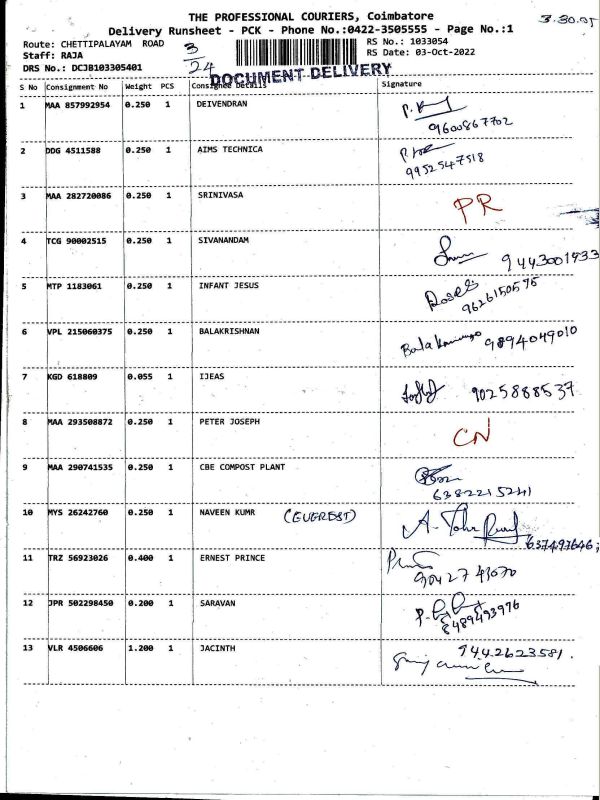 THE PROFESSIONAL COURIERS, Coimbatore
3.30.05
Delivery Runsheet - PCK - Phone No.:0422-3505555 - Page No.:1
Route: CHETTIPALAYAM ROAD
3/24
RS No.: 1033054
Staff: RAJA
RS Date: 03-Oct-2022
DRS No.: DCJB103305401
DOCUMENT DELIVERY
S No Consignment No Weight PCS Consignee Details Signature
1 MAA 857992954 0.250 1 DEIVENDRAN
9600867702
2 DDG 4511588 0.250 1 AIMS TECHNICA
9952547518
3 MAA 282720086 0.250 1 SRINIVASA PR
4 TCG 90002515 0.250 1 SIVANANDAM
9443001933
5 MTP 1183061 0.250 1 INFANT JESUS
9626150575
6 VPL 215060375 0.250 1 BALAKRISHNAN
9894049010
7 KGD 618809 0.055 1 IJEAS
9025888537
8 MAA 293508872 0.250 1 PETER JOSEPH CN
9 MAA 290741535 0.250 1 CBE COMPOST PLANT
6382215241
10 MYS 26242760 0.250 1 NAVEEN KUMR (EVEREST)
11 TRZ 56923026 0.400 1 ERNEST PRINCE
12 JPR 502298450 0.200 1 SARAVAN
8489493976
13 VLR 4506606 1.200 1 JACINTH
9442623581.